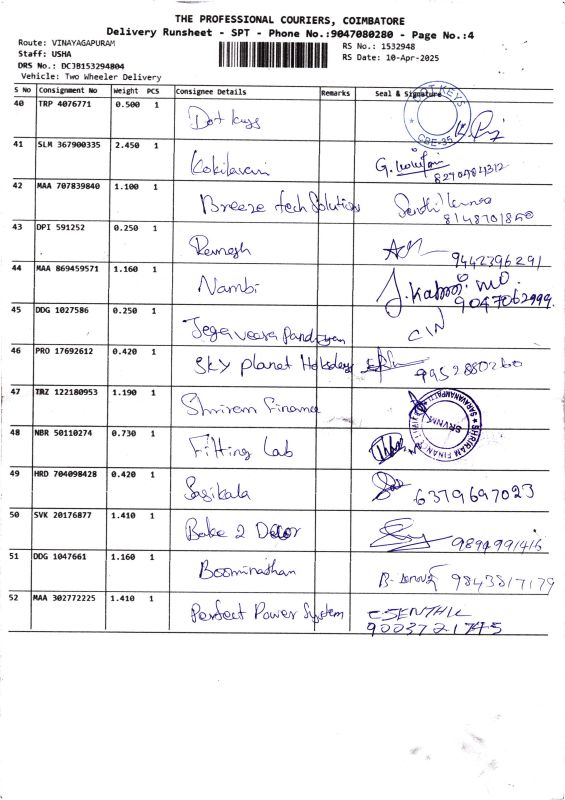 THE PROFESSIONAL COURIERS, COIMBATORE
Delivery Runsheet - SPT - Phone No.:9047080280 - Page No.:4
Route: VINAYAGAPURAM RS No.: 1532948
Staff: USHA RS Date: 10-Apr-2025
DRS No.: DCJB153294804
Vehicle: Two Wheeler Delivery
S No Consignment No Weight PCS Consignee Details Remarks Seal & Signature
40 TRP 4076771 0.500 1 Dot keys DOT KEYS CBE-35
41 SLM 367900335 2.450 1 Kokilavani G. 8270984312
42 MAA 707839840 1.100 1 Breeze tech Solution 8148701850
43 DPI 591252 0.250 1 Ramesh 9442396291
44 MAA 869459571 1.160 1 Nambi 9047062999
45 DDG 1027586 0.250 1 Jegaveera Pandiyan
46 PRO 17692612 0.420 1 Sky planet Holidays 9952880260
47 TRZ 122180953 1.190 1 Shriram Finance SHRIRAM FINANCE SARAVANAMPATTI SRVNM
48 NBR 50110274 0.730 1 Fitting Lab
49 HRD 704098428 0.420 1 Sasikala 6379697023
50 SVK 20176877 1.410 1 Bake 2 Decor 9894991416
51 DDG 1047661 1.160 1 Boominathan 9843817179
52 MAA 302772225 1.410 1 Perfect Power System C.SENTHIL
9003721745